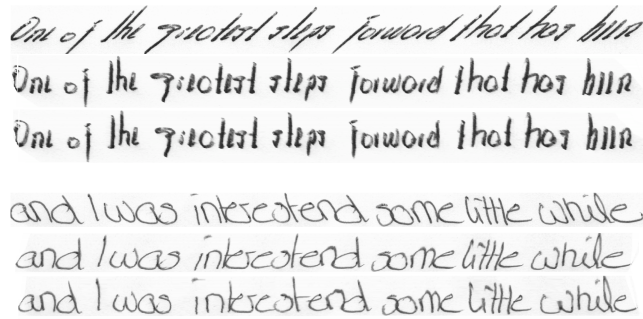 One of the greatest steps forward that has been
One of the greatest steps forward that has been
One of the greatest steps forward that has been
and I was interestend some little while
and I was interestend some little while
and I was interestend some little while